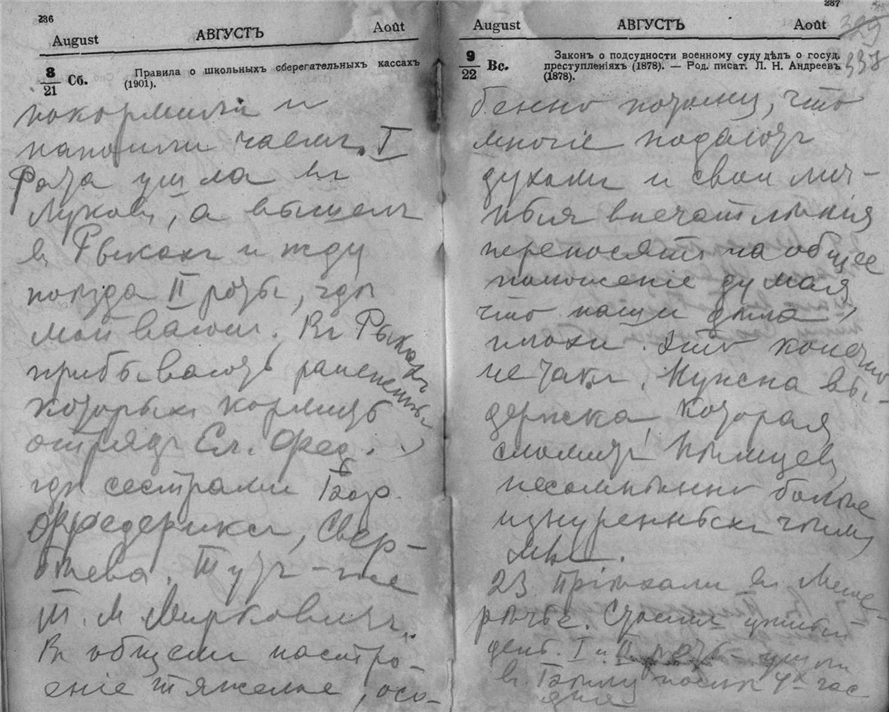 236
August АВГУСТЪ Août
8
21 Сб. Правила о школьныхъ сберегательныхъ кассахъ
(1901).
покормили и
напоили чаемъ. I
Рота ушла въ
Луковъ, а вышелъ
въ Рыкахъ и жду
поѣзда II роты, гдѣ
мой вагонъ. Въ Рыкахъ
прибываютъ раненные,
которыхъ кормитъ
отрядъ Ел. Фед.
гдѣ сестрами
Фредериксъ, Свер-
бѣева. Тутъ-же
Т. М. Миркович.
Въ общемъ настро-
еніе тяжелое, осо-
237
August АВГУСТЪ Août
329
338
9
22 Вс. Законъ о подсудности военному суду дѣлъ о госуд.
преступленіяхъ (1878). — Род. писат. Л. Н. Андреевъ
(1878).
бенно потому, что
многіе падаютъ
духомъ и свои лич-
ныя впечатлѣнія
переносятъ на общее
положеніе думая
что наши дѣла
плохи. Это конечно
не такъ. Нужна вы-
держка, которая
сломитъ Нѣмцевъ,
несомнѣнно болѣе
изнуренныхъ чѣмъ
мы.
23. Пріѣхали въ Меже-
рѣчье. Стоимъ цѣлый
день. I и II роты ушли
въ послѣ 4х час
дня